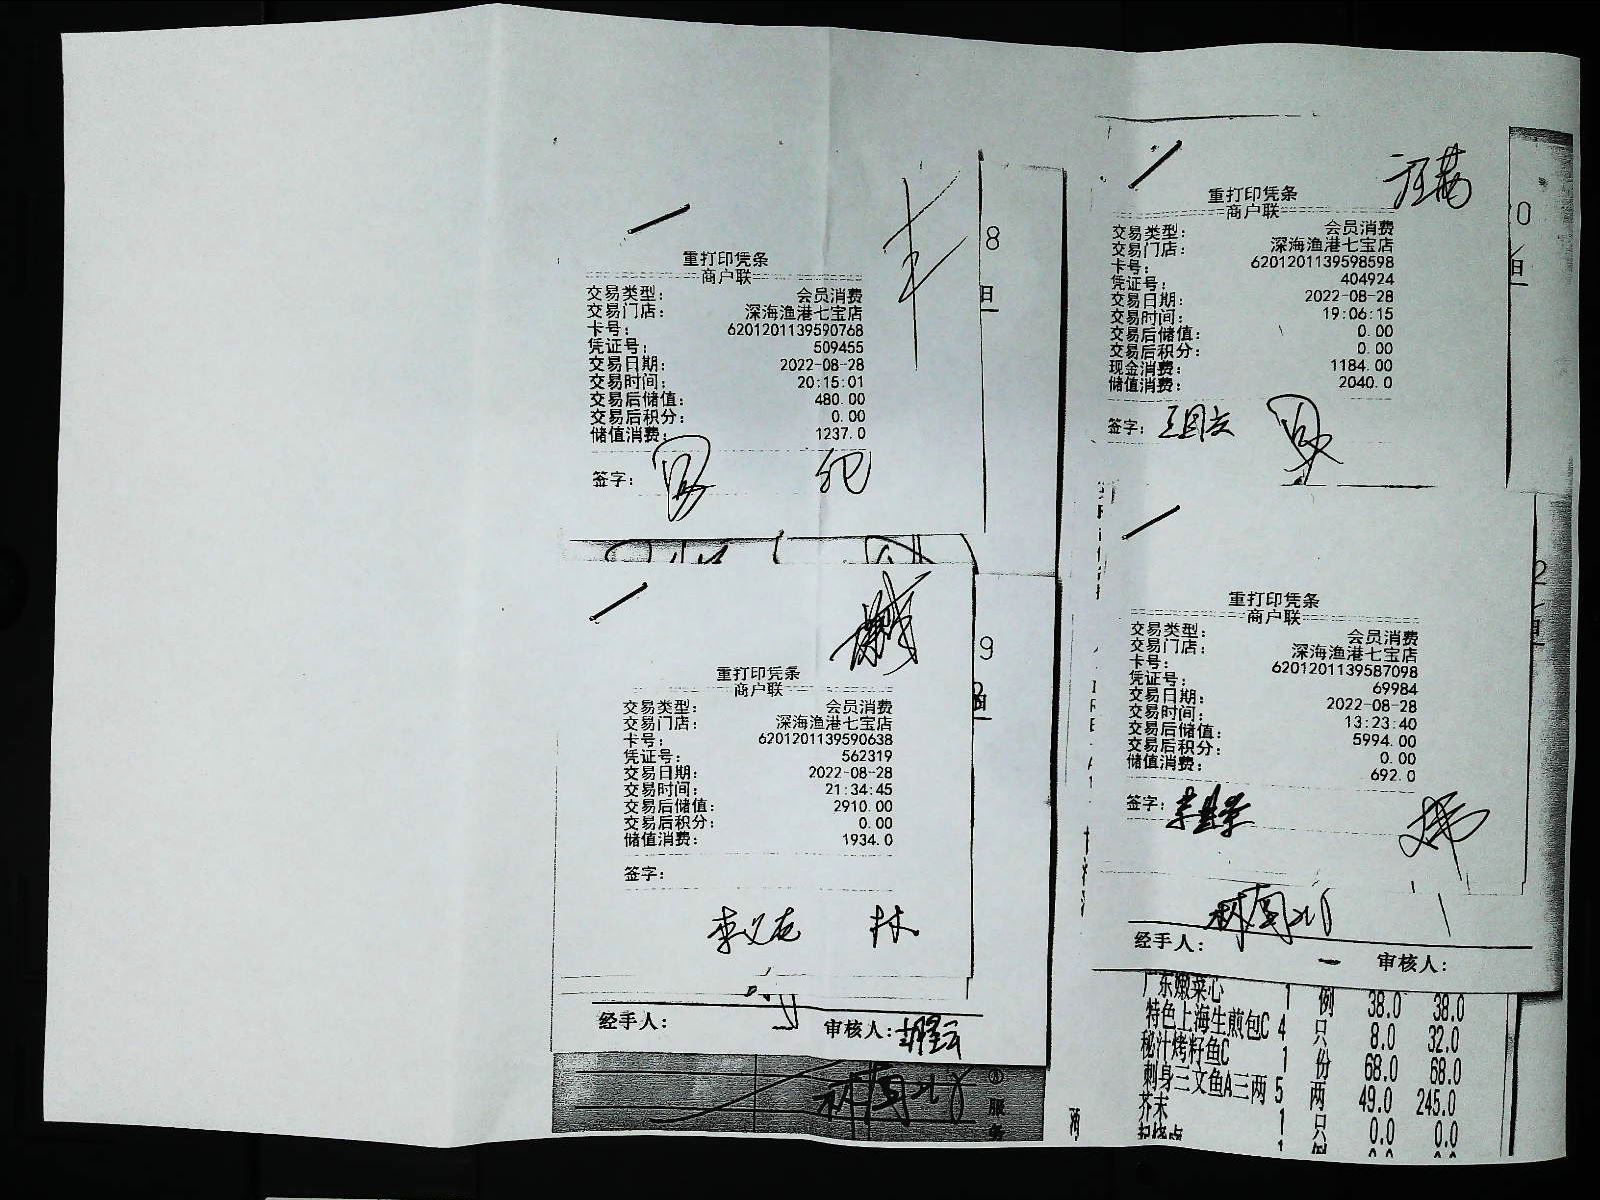 重打印凭条
商户联
交易类型： 会员消费
交易门店： 深海渔港七宝店
卡号： 6201201139590768
凭证号： 509455
交易日期： 2022-08-28
交易时间： 20:15:01
交易后储值： 480.00
交易后积分： 0.00
储值消费： 1237.0
签字：
8
日
重打印凭条
商户联
交易类型： 会员消费
交易门店： 深海渔港七宝店
卡号： 6201201139590638
凭证号： 562319
交易日期： 2022-08-28
交易时间： 21:34:45
交易后储值： 2910.00
交易后积分： 0.00
储值消费： 1934.0
签字：
林
9
经手人： 审核人：
服
重打印凭条
商户联
交易类型： 会员消费
交易门店： 深海渔港七宝店
卡号： 6201201139598598
凭证号： 404924
交易日期： 2022-08-28
交易时间： 19:06:15
交易后储值： 0.00
交易后积分： 0.00
现金消费： 1184.00
储值消费： 2040.0
签字：
重打印凭条
商户联
交易类型： 会员消费
交易门店： 深海渔港七宝店
卡号： 6201201139587098
凭证号： 69984
交易日期： 2022-08-28
交易时间： 13:23:40
交易后储值： 5994.00
交易后积分： 0.00
储值消费： 692.0
签字：
经手人： 审核人：
广东嫩菜心 1 例 38.0 38.0
特色上海生煎包C 4 只 8.0 32.0
秘汁烤籽鱼C 1 份 68.0 68.0
刺身三文鱼A三两 5 两 49.0 245.0
芥末 1 只 0.0 0.0